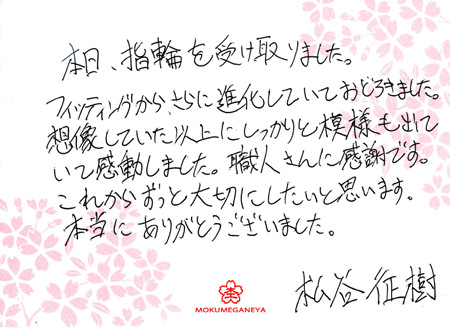 本日、指輪を受け取りました。
フィッティングから、さらに進化していておどろきました。
想像していた以上にしっかりと模様も出て
いて感動しました。職人さんに感謝です。
これからずっと大切にしたいと思います。
本当にありがとうございました。
松谷征樹
MOKUMEGANEYA